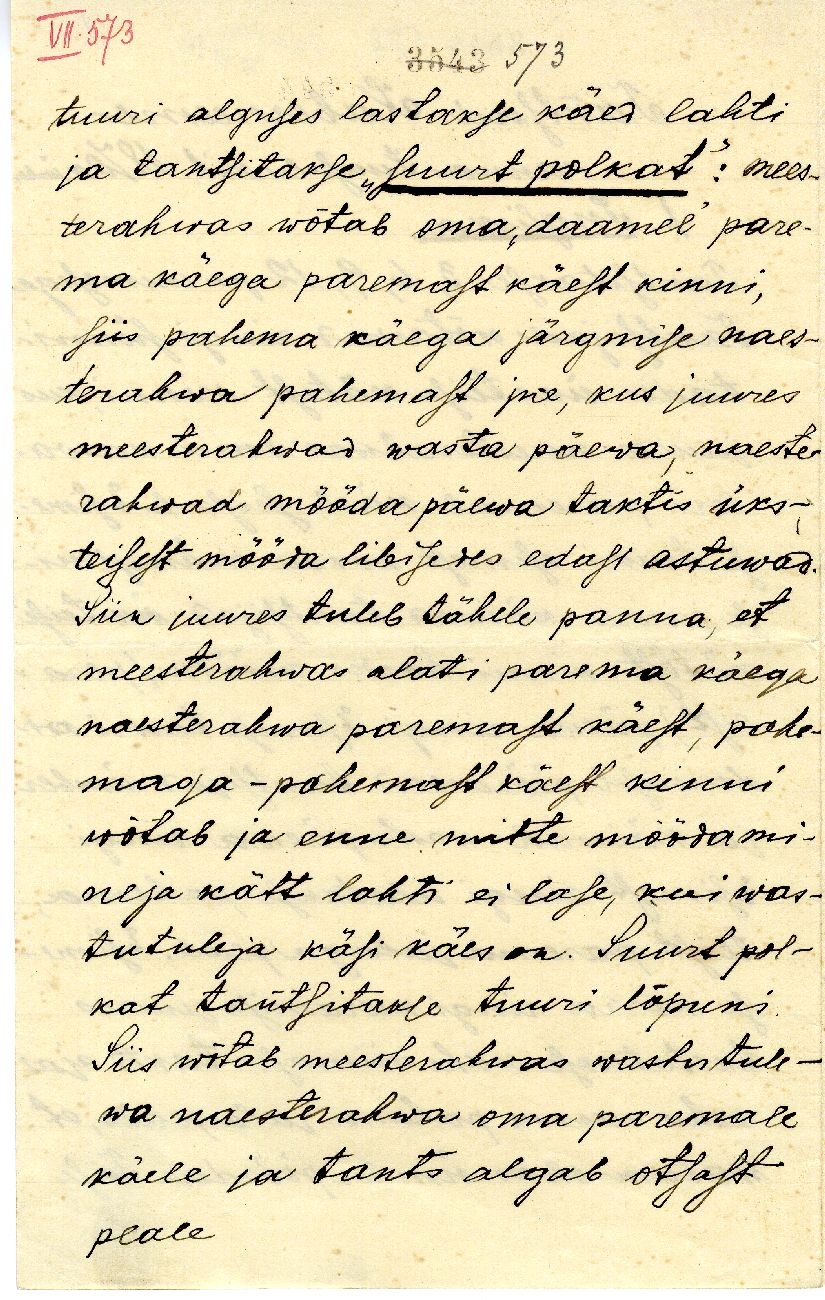 VII. 573
3543 573
tuuri alguses lastakse käed lahti
ja tantsitakse „suurt polkat”: mees-
terahwas wõtab oma „daamel” pare-
ma käega paremast käest kinni,
siis pahema käega järgmise naes-
terahwa pahemast jne, kus juures
meesterahwad wasta päewa, naeste-
rahwad mööda päewa taktis üks-
teisest mööda libisedes edasi astuwad.
Siin juures tuleb tähele panna, et
meesterahwas alati parema käega
naesterahwa paremast käest, pahe-
maga - pahemast käest kinni
wõtab ja enne mitte möödami-
neja kätt lahti ei lase, kui was-
tutuleja käsi käes on. Suurt pol-
kat tantsitakse tuuri lõpuni.
Siis wõtab meesterahwas wastutule-
wa naesterahwa oma paremale
käele ja tants algab otsast
peale